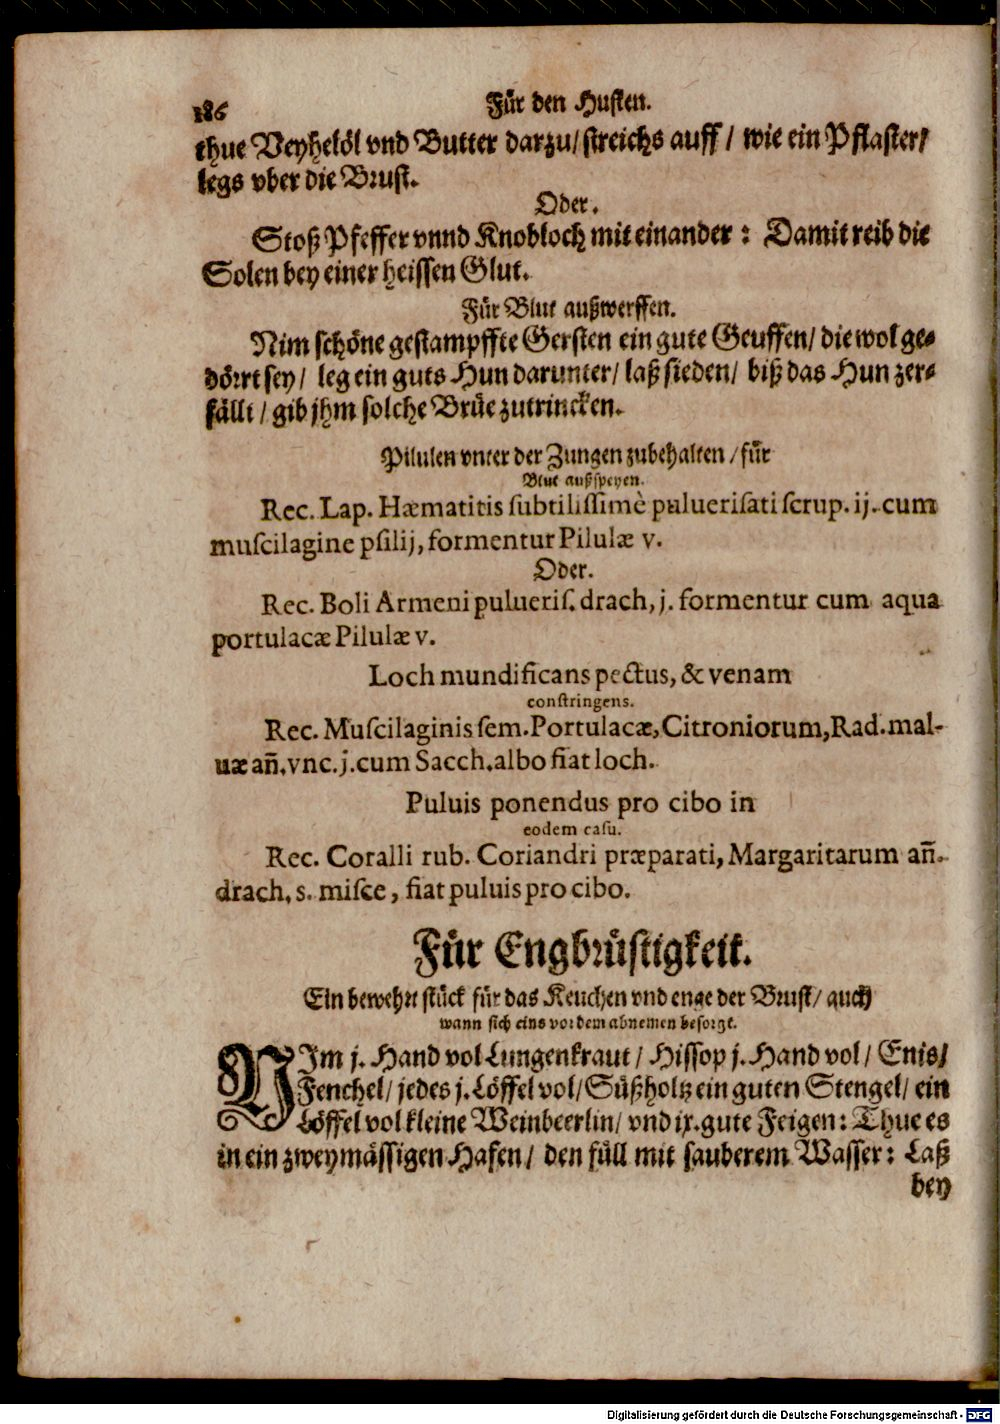 186 Für den Husten.
thue Veyhelöl vnd Butter darzu/ streichs auff / wie ein Pflaster/
legs vber die Brust.
Oder.
Stoß Pfeffer vnnd Knobloch mit einander : Damit reib die
Solen bey einer heissen Glut.
Für Blut außwerffen.
Nim schöne gestampffte Gersten ein gute Geuffen/ die wol ge-
dörrt sey/ leg ein guts Hun darunter/ laß sieden/ biß das Hun zer-
fällt / gib jhm solche Brüe zutrincken.
Pilulen vnter der Zungen zubehalten / für
Blut außspeyen.
Rec. Lap. Hæmatitis subtilissimè puluerisati scrup. ij. cum
muscilagine psilij, formentur Pilulæ v.
Oder.
Rec. Boli Armeni pulueris. drach, j. formentur cum aqua
portulacæ Pilulæ v.
Loch mundificans pectus, & venam
constringens.
Rec. Muscilaginis sem. Portulacæ, Citroniorum, Rad. mal-
uæ añ. vnc. j. cum Sacch. albo fiat loch.
Puluis ponendus pro cibo in
eodem casu.
Rec. Coralli rub. Coriandri præparati, Margaritarum añ.
drach. s. misce, fiat puluis pro cibo.
Für Engbrüstigkeit.
Ein bewehrt stück für das Keuchen vnd enge der Brust/ auch
wann sich eins vor dem abnemen besorgt.
NIm j. Hand vol Lungenkraut / Hissop j. Hand vol / Enis/
Fenchel/ jedes j. Löffel vol/ Süßholtz ein guten Stengel/ ein
Löffel vol kleine Weinbeerlin/ vnd ix. gute Feigen : Thue es
in ein zweymässigen Hafen / den füll mit sauberem Wasser : Laß
bey
Digitalisierung gefördert durch die Deutsche Forschungsgemeinschaft - DFG